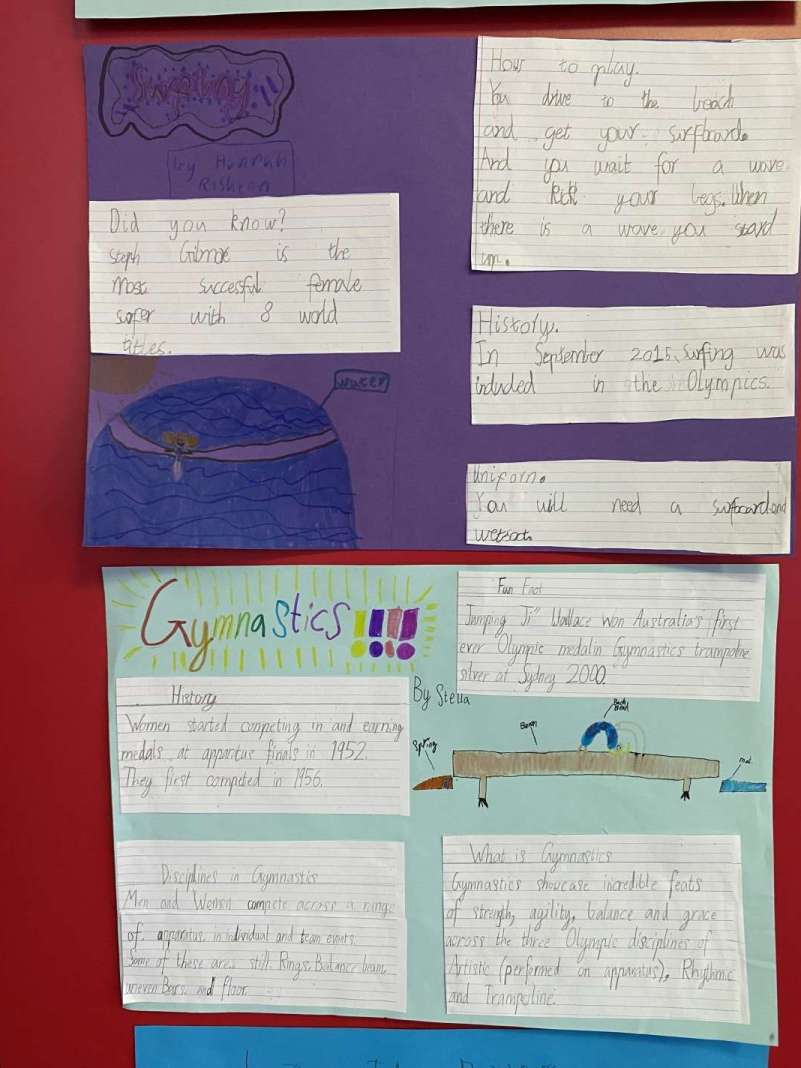 by Hannah
Did you know?
Steph Gilmore is the
most succesful female
surfer with 8 world
titles.
water
How to play.
You drive to the beach
and get your surfboard.
And you wait for a wave
and kick your legs. When
there is a wave you stand
up.
History.
In September 2015, surfing was
included in the Olympics.
Uniform.
You will need a surfboard and
Gymnastics!!!!
By Stella
History
Women started competing in and earning
medals at apparatus finals in 1952.
They first competed in 1956.
Fun Fact
Jumping Ji" Wallace won Australia's first
ever Olympic medal in Gymnastics trampoline
silver at Sydney 2000.
Spring
Beam
Back
Bend
mat
Disciplines in Gymnastics
Men and Women compete across a range
of apparatus in individual and team events.
Some of these are still Rings, Balance beam,
uneven Bars. and floor.
What is Gymnastics
Gymnastics showcase incredible feats
of strength, agility, balance and grace
across the three Olympic disciplines of
Artistic (performed on apparatus), Rhythmic
and Trampoline.